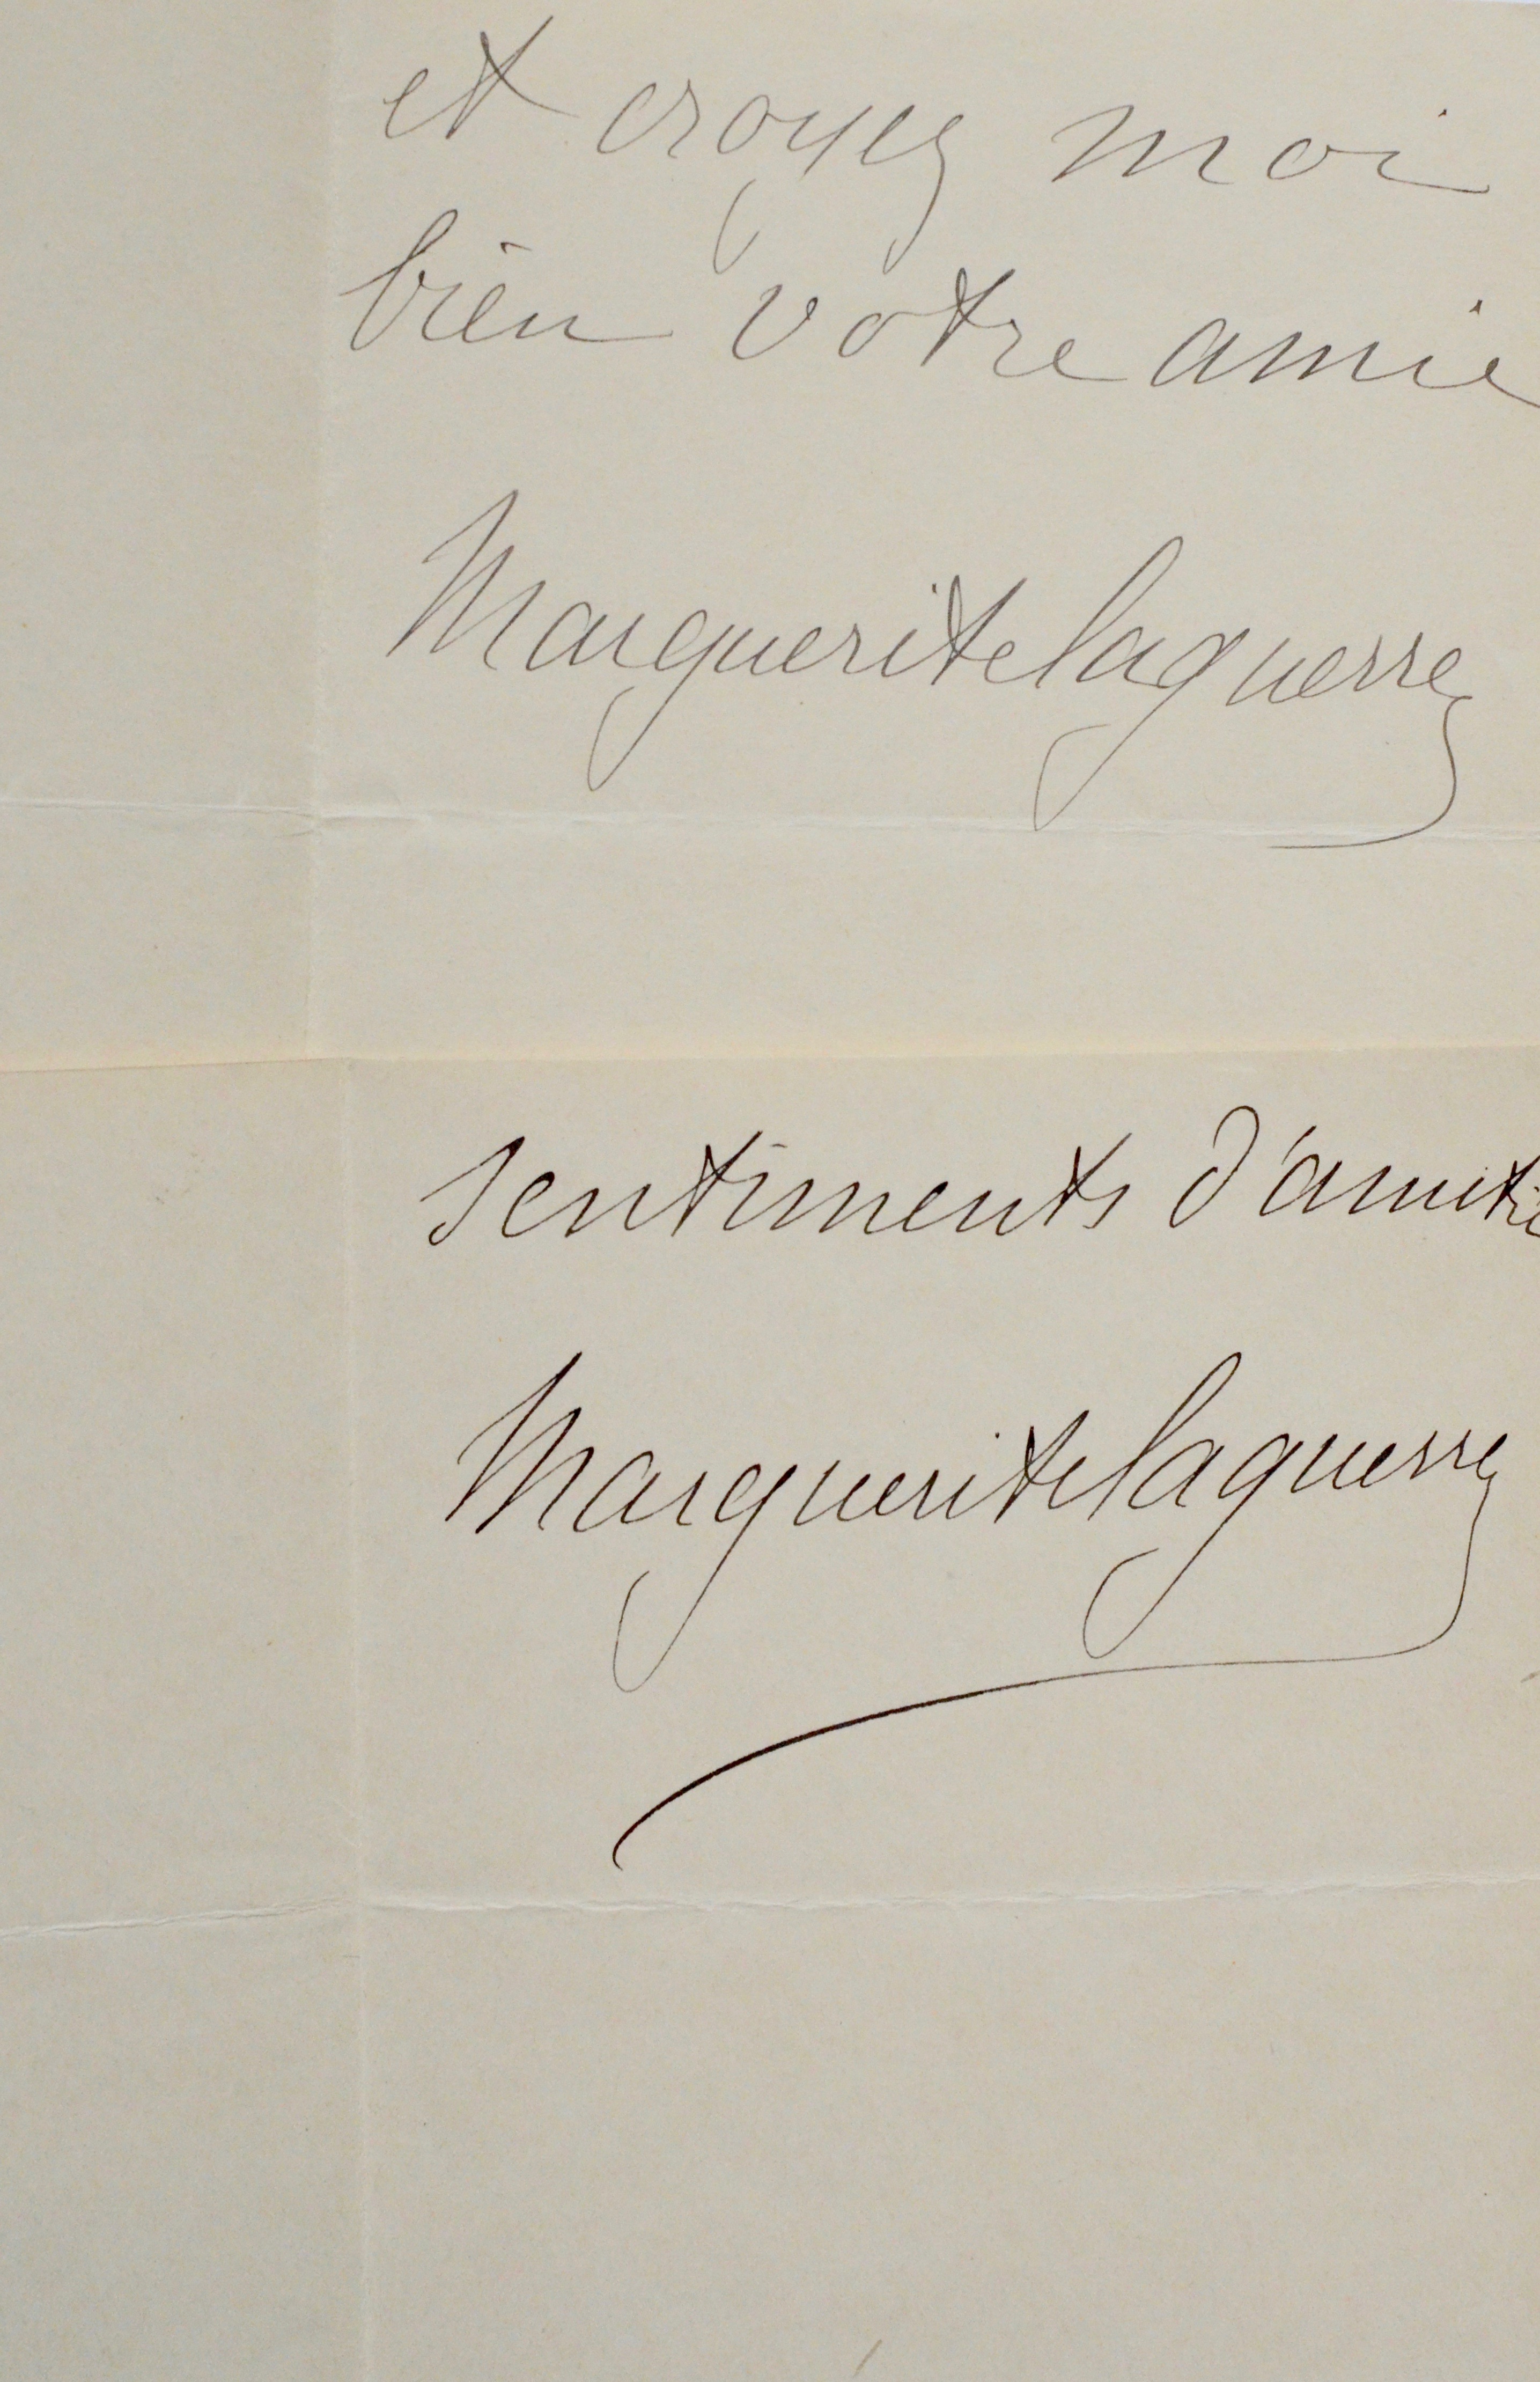 et croyez moi
bien votre amie
Marguerite laguerre
sentiments d'amitié
Marguerite laguerre